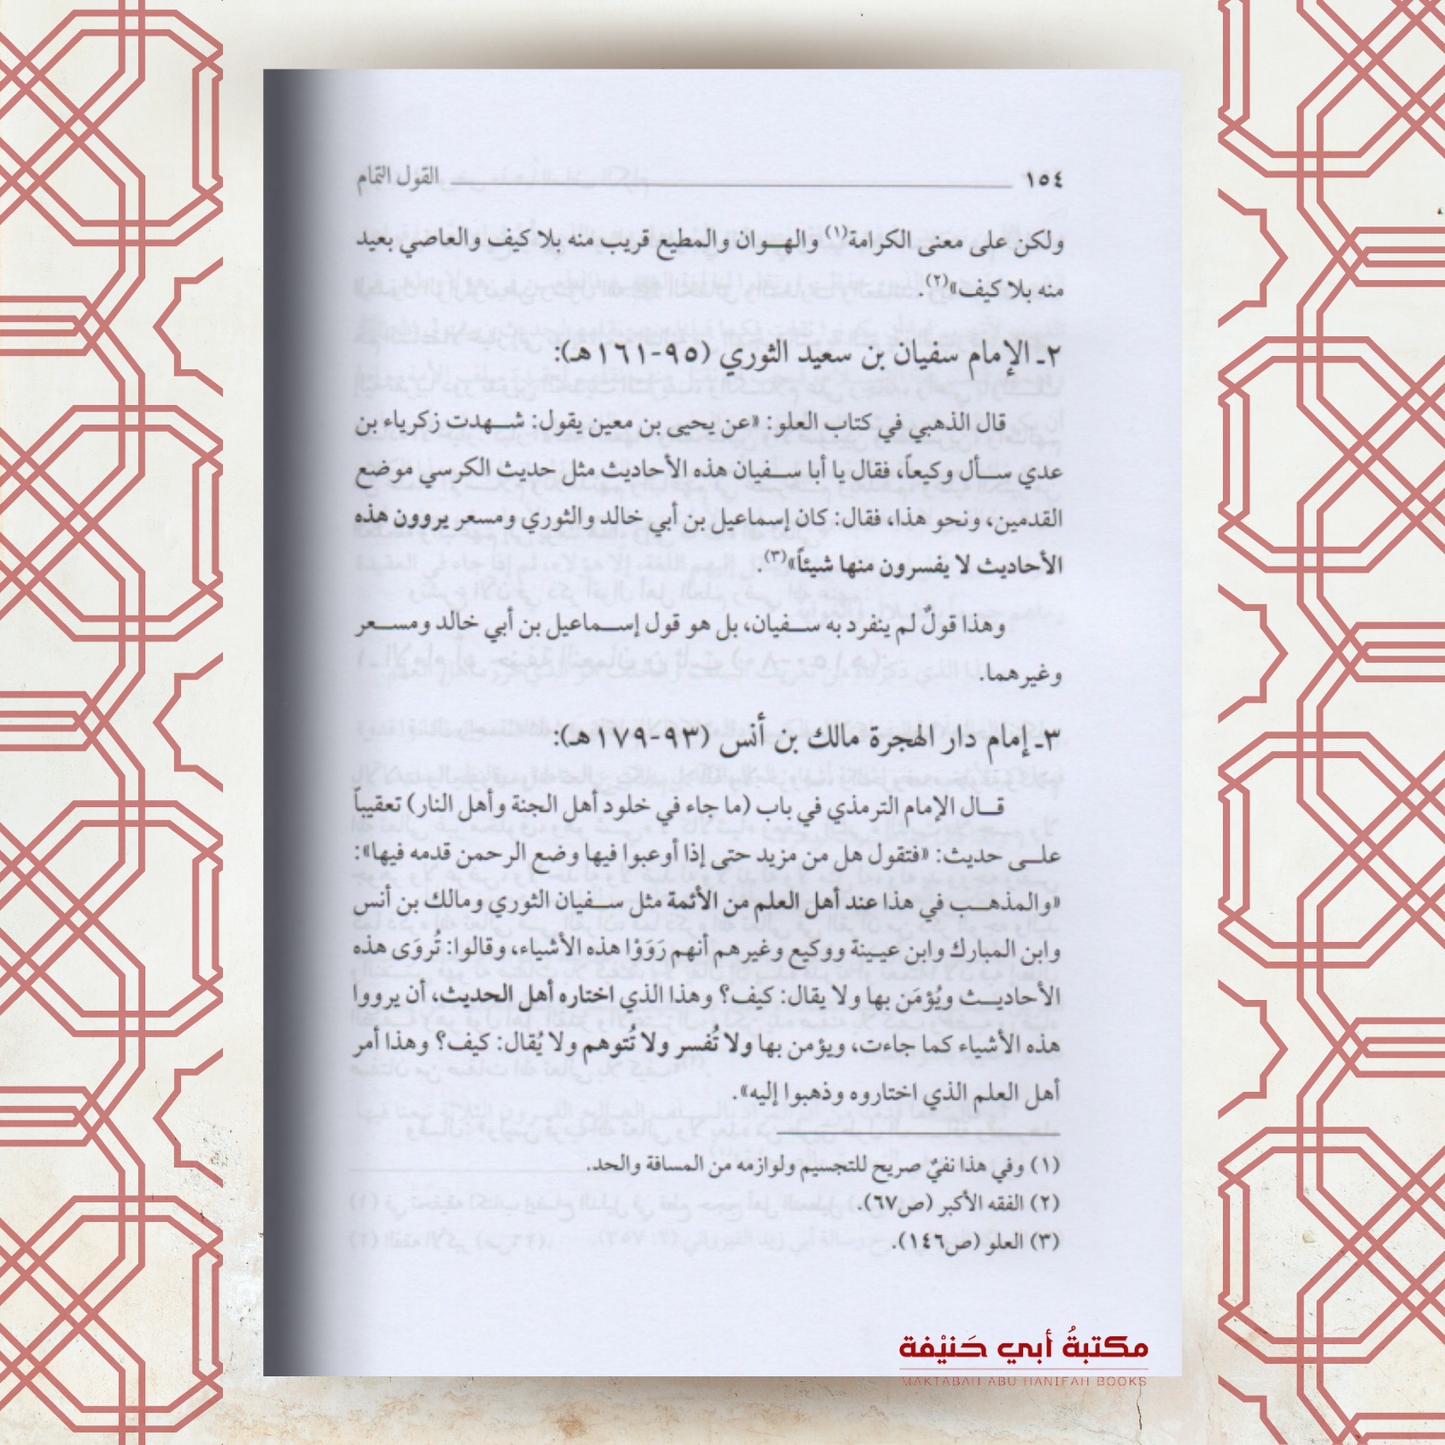 ١٥٤ القول التمام
ولكن على معنى الكرامة(١) والهوان والمطيع قريب منه بلا كيف والعاصي بعيد
منه بلا كيف»(٢).
٢ـ الإمام سفيان بن سعيد الثوري (٩٥-١٦١هـ):
قال الذهبي في كتاب العلو: «عن يحيى بن معين يقول: شهدت زكرياء بن
عدي سأل وكيعاً، فقال يا أبا سفيان هذه الأحاديث مثل حديث الكرسي موضع
القدمين، ونحو هذا، فقال: كان إسماعيل بن أبي خالد والثوري ومسعر يروون هذه
الأحاديث لا يفسرون منها شيئاً»(٣).
وهذا قولٌ لم ينفرد به سفيان، بل هو قول إسماعيل بن أبي خالد ومسعر
وغيرهما.
٣ـ إمام دار الهجرة مالك بن أنس (٩٣-١٧٩هـ):
قال الإمام الترمذي في باب (ما جاء في خلود أهل الجنة وأهل النار) تعقيباً
على حديث: «فتقول هل من مزيد حتى إذا أوعبوا فيها وضع الرحمن قدمه فيها»:
«والمذهب في هذا عند أهل العلم من الأئمة مثل سفيان الثوري ومالك بن أنس
وابن المبارك وابن عيينة ووكيع وغيرهم أنهم رَوَوْا هذه الأشياء، وقالوا: تُروَى هذه
الأحاديث ويُؤمَن بها ولا يقال: كيف؟ وهذا الذي اختاره أهل الحديث، أن يرووا
هذه الأشياء كما جاءت، ويؤمن بها ولا تُفسر ولا تُتوهم ولا يُقال: كيف؟ وهذا أمر
أهل العلم الذي اختاروه وذهبوا إليه».
(١) وفي هذا نفيٌ صريح للتجسيم ولوازمه من المسافة والحد.
(٢) الفقه الأكبر (ص٦٧).
(٣) العلو (ص١٤٦).
مكتبةُ أبي حَنيْفة
MAKTABAH ABU HANIFAH BOOKS